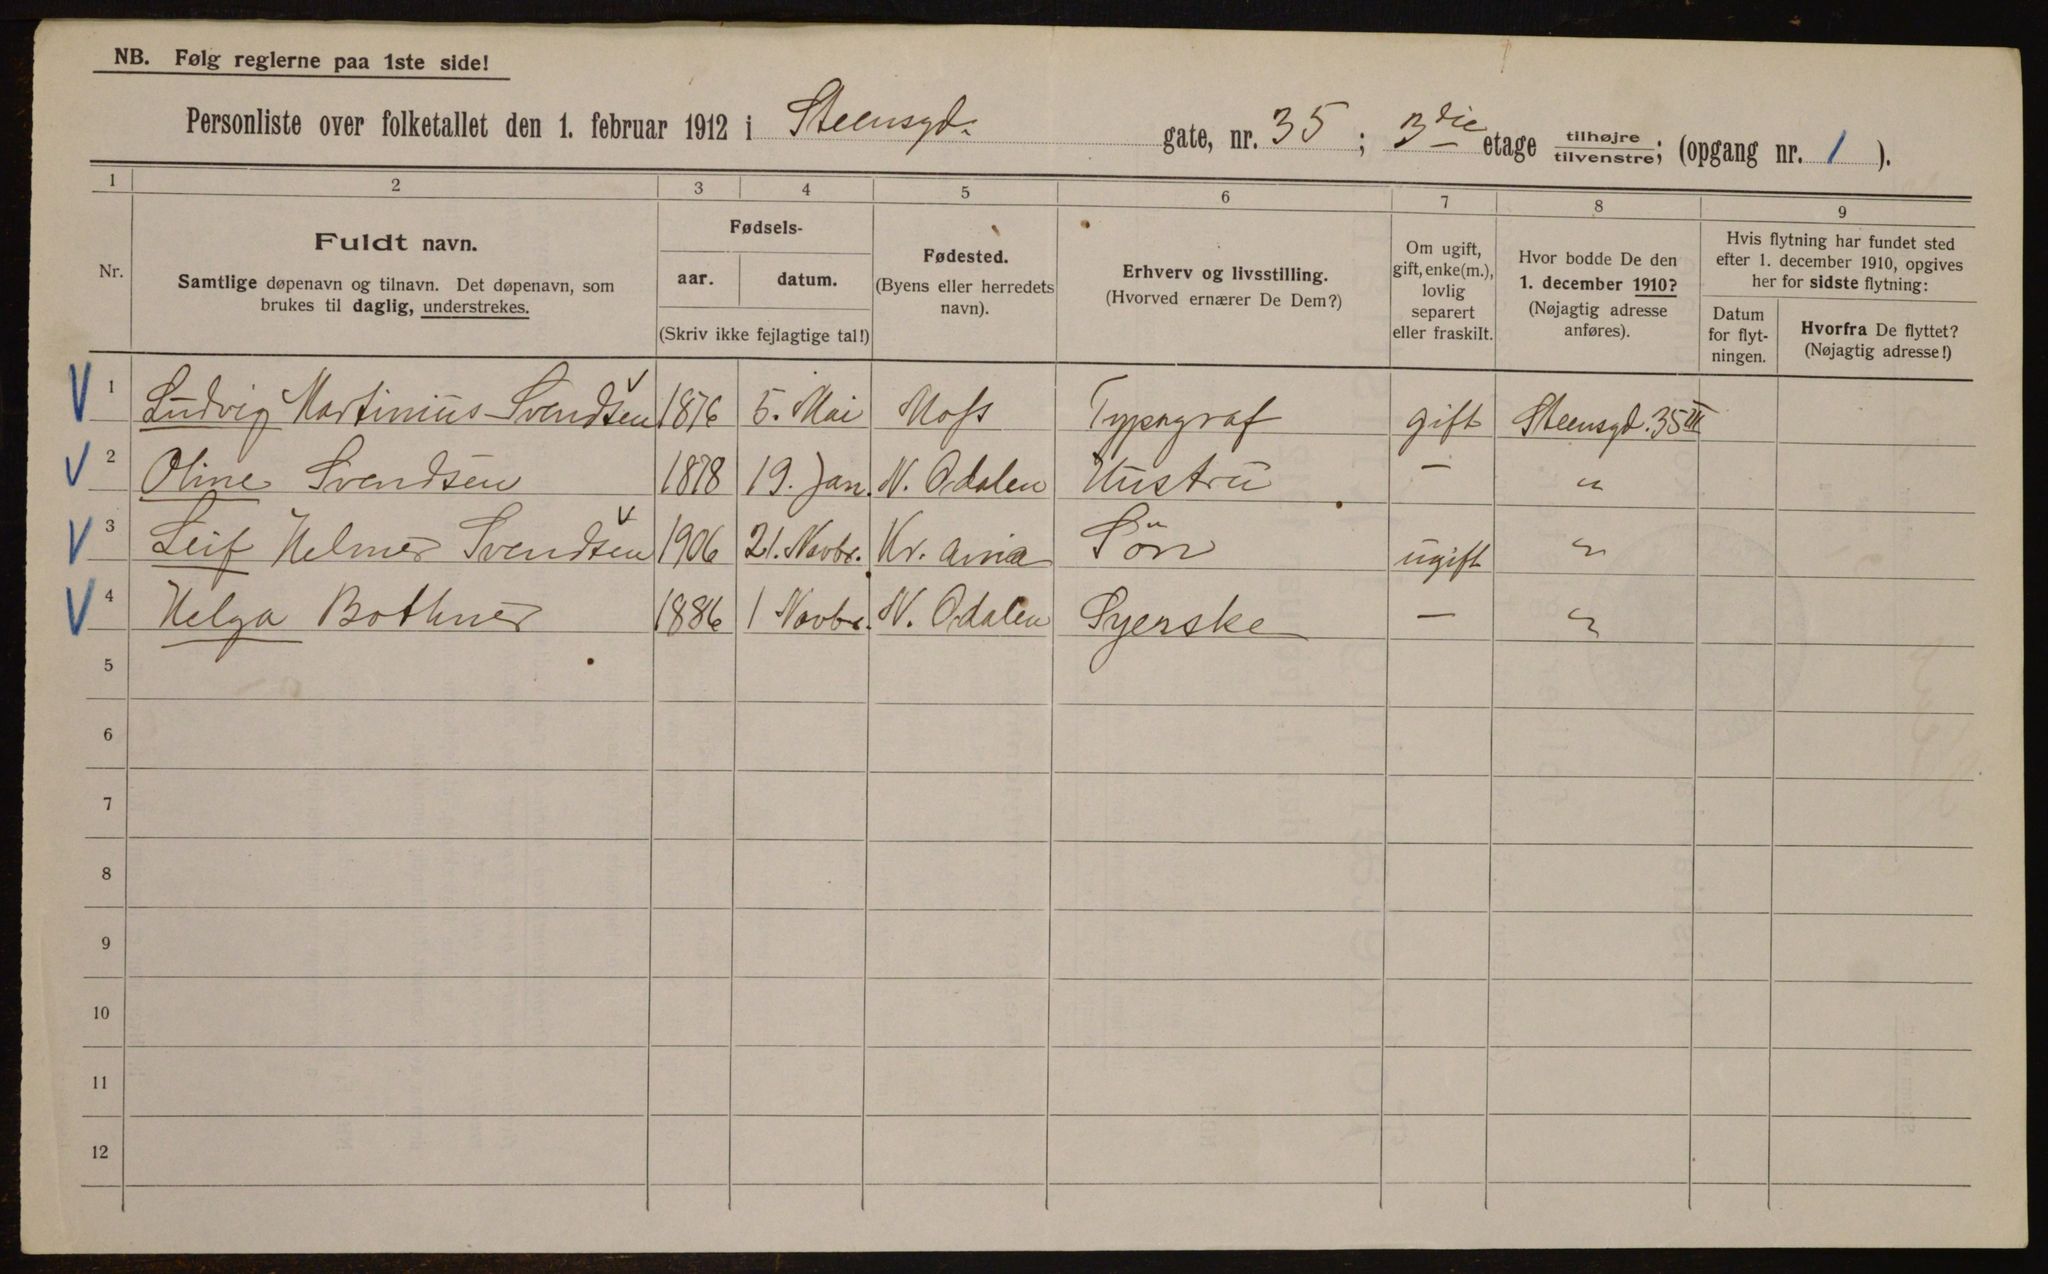 NB. Følg reglerne paa 1ste side!
Personliste over folketallet den 1. februar 1912 i Steensgd. gate, nr. 35 ; 3die etage tilhøjre/tilvenstre; (opgang nr. 1 ).
1 2 3 4 5 6 7 8 9
Nr.
Fuldt navn.
Samtlige døpenavn og tilnavn. Det døpenavn, som
brukes til daglig, understrekes.
Fødsels-
aar. datum.
(Skriv ikke fejlagtige tal!)
Fødested.
(Byens eller herredets
navn).
Erhverv og livsstilling.
(Hvorved ernærer De Dem?)
Om ugift,
gift, enke(m.),
lovlig
separert
eller fraskilt.
Hvor bodde De den
1. december 1910?
(Nøjagtig adresse
anføres).
Hvis flytning har fundet sted
efter 1. december 1910, opgives
her for sidste flytning:
Datum
for flyt-
ningen.
Hvorfra De flyttet?
(Nøjagtig adresse!)
1 Ludvig Martinius Svendsen 1876 5. Mai Moss Typograf gift Steensgd. 35 III
2 Oline Svendsen 1878 19. Jan. N. Odalen Hustru — "
3 Leif Helmer Svendsen 1906 21. Novbr. Kr.ania Søn ugift "
4 Helga Bothner 1886 1 Novbr. N. Odalen Syerske — "
5
6
7
8
9
10
11
12